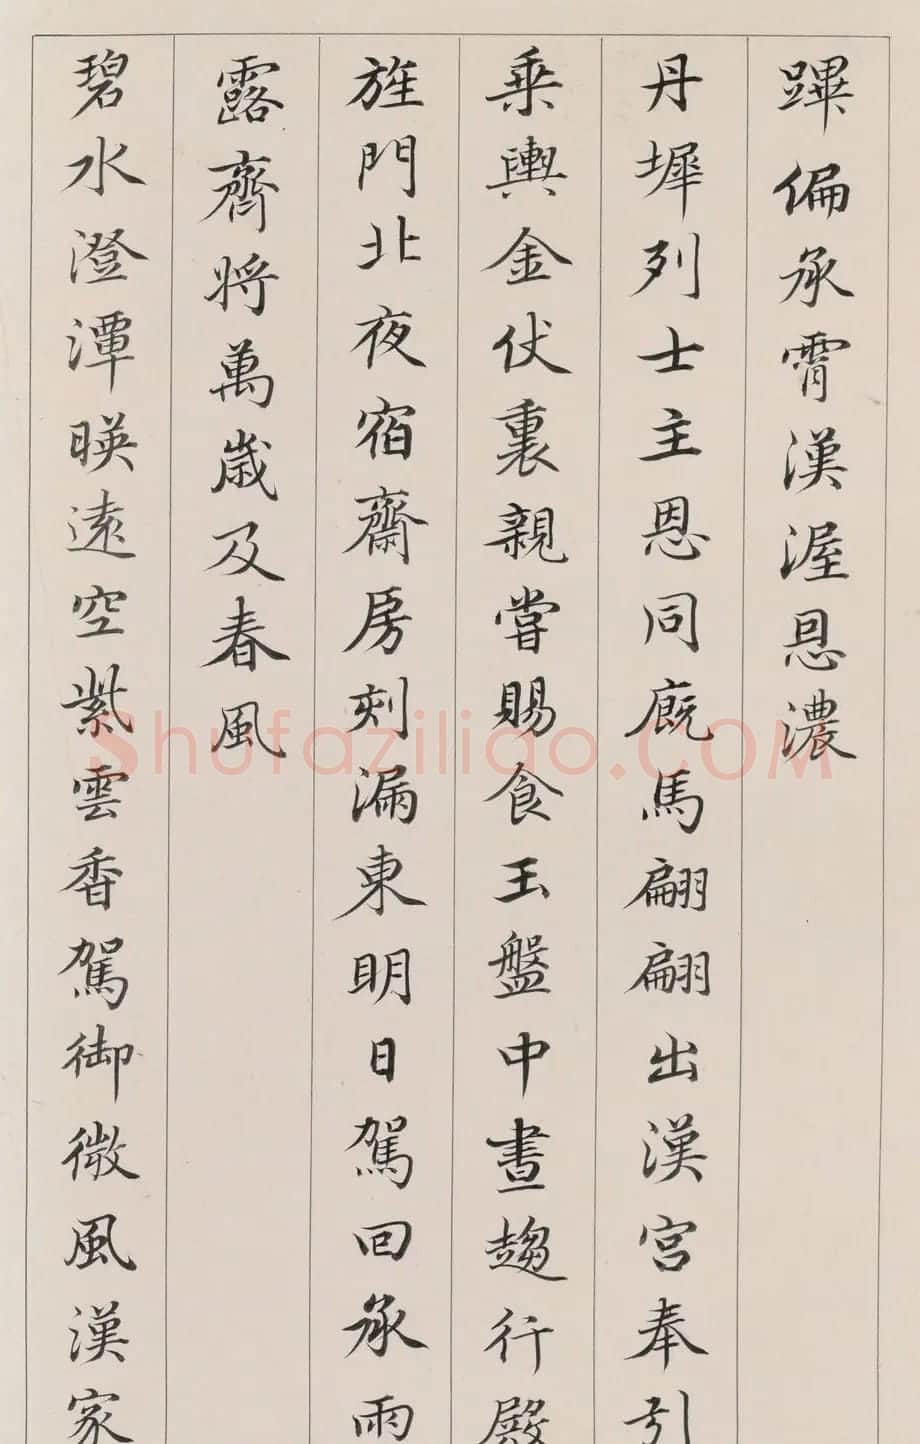 蹕偏承霄漢渥恩濃
丹墀列士主恩同廐馬翩翩出漢宮奉引
乘輿金仗裏親嘗賜食玉盤中晝趨行殿
旌門北夜宿齋房刻漏東明日駕回承雨
露齊將萬歲及春風
碧水澄潭暎遠空紫雲香駕御微風漢家
Shufaziliao.COM